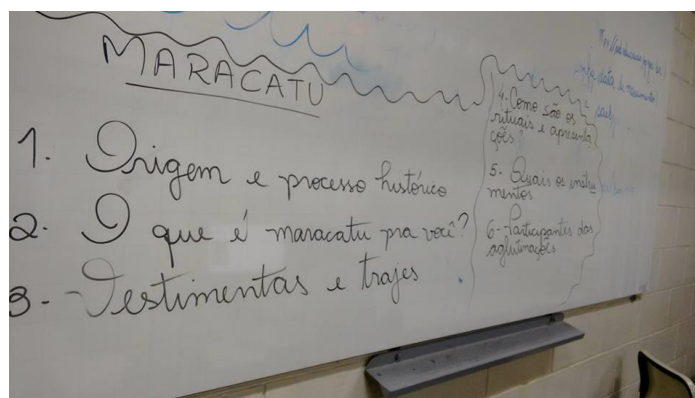 MARACATU
1. Origem e processo histórico
2. O que é maracatu pra você?
3- Vestimentas e trajes
4- Como são os
rituais e apresenta
ções?
5- Quais os instru
mentos
6- Participantes das
aglutinações